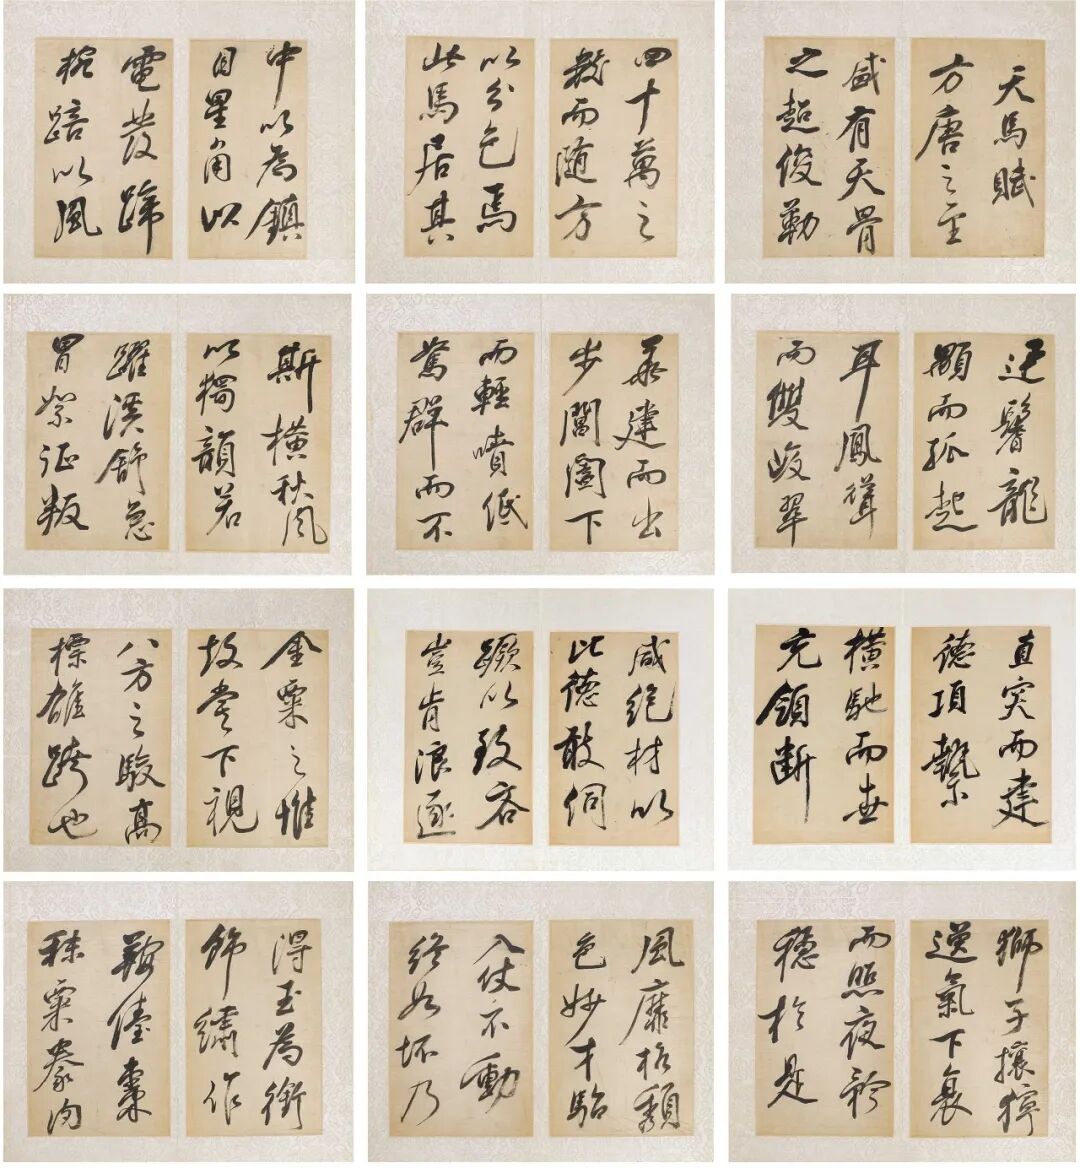 天馬賦
方唐之至
盛有天骨
之超俊勒
四十萬之
數而隨方
以分色焉
此馬居其
中以為鎮
目星角以
電發蹄
椀踣以風
迅鬐龍
顒而孤起
耳鳳聳
而雙峻翠
華建而出
步閶闔下
而輕噴低
駑群而不
斯橫秋風
以獨韻若
躍溪舒急
冒絮征叛
直突而建
德項縶
橫馳而世
充領斷
咸絕材以
比德敢伺
蹶以致吝
豈肯浪逐
金粟之堆
故當下視
八方之駿高
標雄跨也
獅子攘獰
逸氣下衰
而照夜矜
穩於是
風靡格頹
色妙才駘
入仗不動
終如坯乃
得玉為銜
飾繡作
鞍儓棗
秣粟豢肉